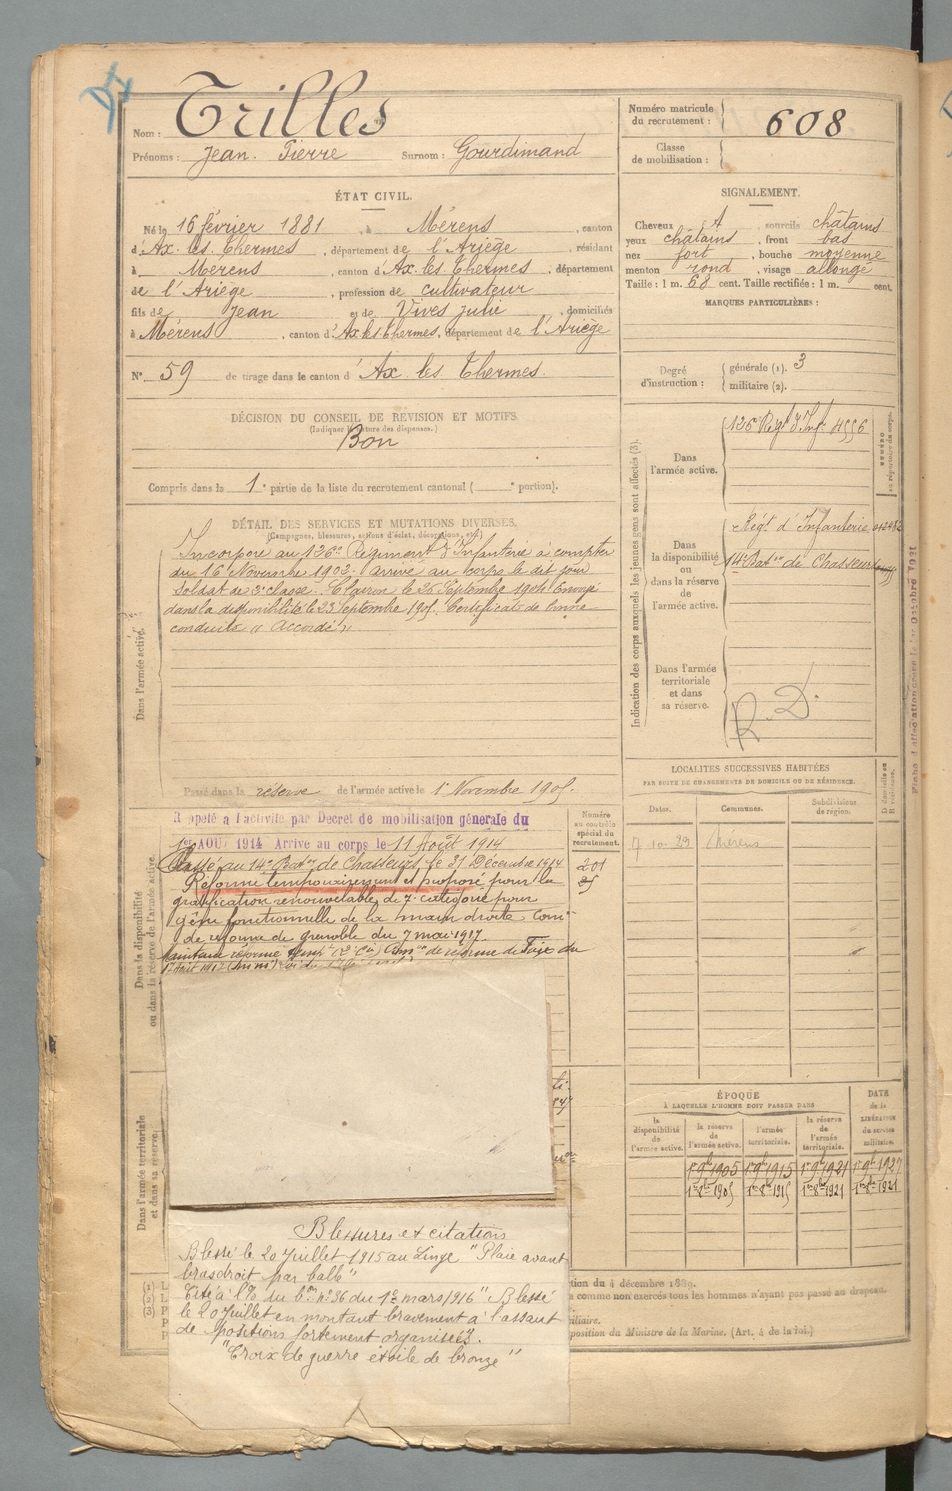 Nom : Trilles
Prénoms : Jean Pierre Surnom : Gourdimand
Numéro matricule du recrutement : 608
Classe de mobilisation :
ÉTAT CIVIL.
Né le 16 février 1881, à Mérens, canton
d'Ax les Thermes, département de l'Ariège, résidant
à Mérens, canton d'Ax les Thermes, département
de l'Ariège, profession de cultivateur
fils de Jean et de Vives Julie, domiciliés
à Mérens, canton d'Ax les Thermes, département de l'Ariège
N° 59 de tirage dans le canton d'Ax les Thermes.
SIGNALEMENT.
Cheveux sourcils châtains
yeux châtains, front bas
nez fort, bouche moyenne
menton rond, visage allongé
Taille : 1 m. 68 cent. Taille rectifiée : 1 m. cent.
MARQUES PARTICULIÈRES :
Degré d'instruction : générale (1). 3
militaire (2).
DÉCISION DU CONSEIL DE RÉVISION ET MOTIFS.
(Indiquer la nature des dispenses.)
Bon
Compris dans la 1e partie de la liste du recrutement cantonal ( e portion).
DÉTAIL DES SERVICES ET MUTATIONS DIVERSES.
(Campagnes, blessures, actions d'éclat, décorations, etc.)
Dans l'armée active.
Incorporé au 126e Régiment d'Infanterie à compter
du 16 Novembre 1902. arrivé au corps le dit jour
Soldat de 2e classe. Clairon le 26 Septembre 1904 Envoyé
dans la disponibilité le 23 Septembre 1905. Certificat de bonne
conduite « Accordé »
Passé dans la réserve de l'armée active le 1er Novembre 1905.
Indication des corps auxquels les jeunes gens sont affectés (3).
Dans l'armée active.
126e Régt d'Inf. 4556
Dans la disponibilité ou dans la réserve de l'armée active.
Régt d'Infanterie
14e Baton de Chasseurs
Dans l'armée territoriale et dans sa réserve.
R. D.
LOCALITÉS SUCCESSIVES HABITÉES
PAR SUITE DE CHANGEMENTS DE DOMICILE OU DE RÉSIDENCE.
Dates. Communes. Subdivisions de région.
7-10-29 Mérens
Dans la disponibilité ou dans la réserve de l'armée active.
Numéro au contrôle spécial du recrutement.
201
Rappelé à l'activité par Décret de mobilisation générale du
1er AOUT 1914 Arrivé au corps le 11 Août 1914
Passé au 14e Baton de Chasseurs le 31 Décembre 1914
Réformé temporairement et proposé pour la
gratification renouvelable de 7e catégorie pour
gêne fonctionnelle de la main droite Comon
de réforme de Grenoble du 7 mai 1917
de réforme de Foix du
Dans l'armée territoriale et dans sa réserve.
ÉPOQUE
À LAQUELLE L'HOMME DOIT PASSER DANS
la disponibilité de l'armée active. la réserve de l'armée active. l'armée territoriale. la réserve de l'armée territoriale.
DATE de la LIBÉRATION du service militaire.
1er 9bre 1905 1er 9bre 1915 1er 9bre 1921 1er 9bre 1927
1er 8bre 1905 1er 8bre 1915 1er 8bre 1921
Blessures et citations
Blessé le 20 Juillet 1915 au Linge "Plaie avant
bras droit par balle"
Cité à l'O. du bon n° 36 du 12 mars 1916 "Blessé
le 20 Juillet en montant bravement à l'assaut
de positions fortement organisées.
"Croix de guerre étoile de bronze"
(1) L
(2) L
(3) P
tion du 4 décembre 1889.
e comme non exercés tous les hommes n'ayant pas passé au drapeau.
iliaire.
position du Ministre de la Marine. (Art. 4 de la loi.)